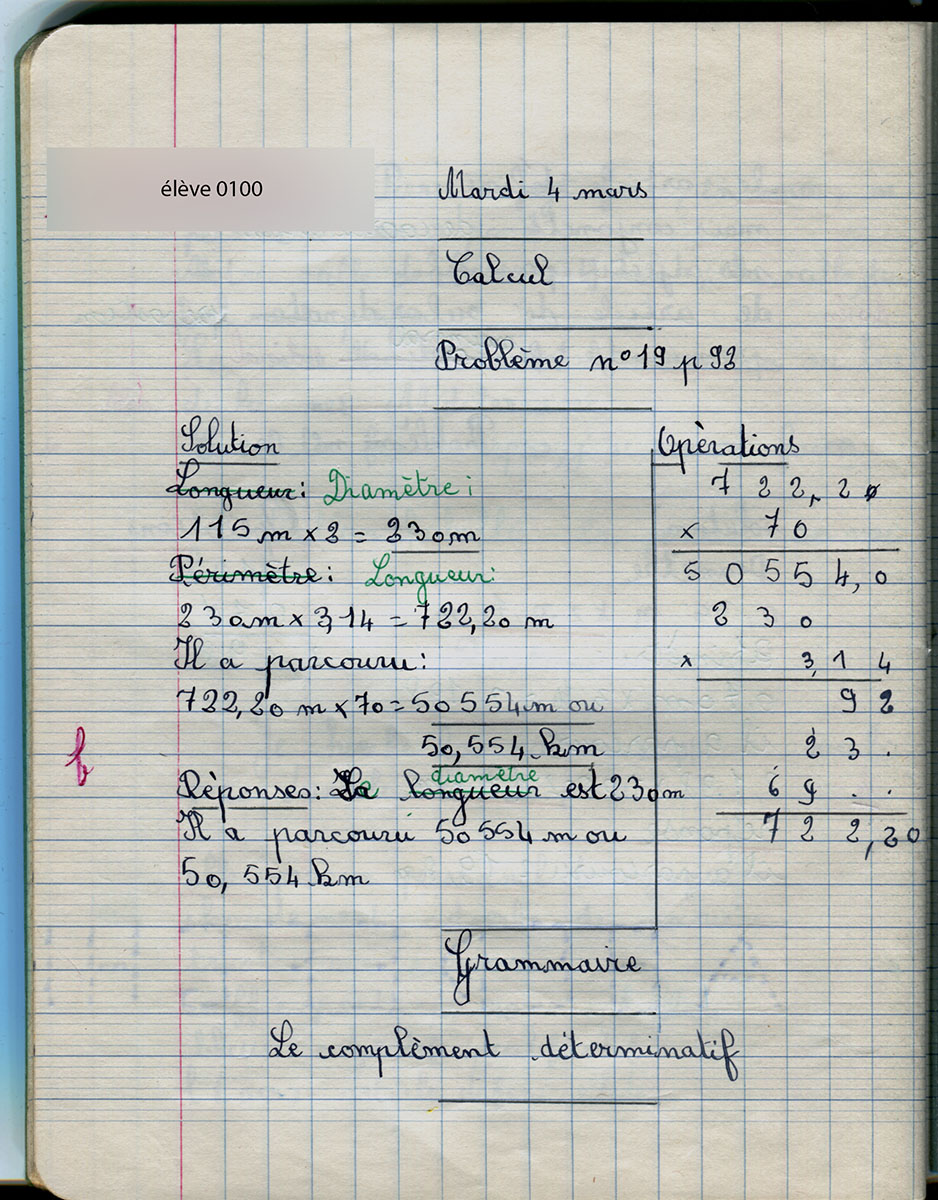 élève 0100
Mardi 4 mars
Calcul
Problème n° 19 p 93
Solution
Longueur: Diamètre:
115 m x 2 = 230 m
Périmètre: Longueur:
230 m x 3,14 = 722,20 m
Il a parcouru:
722,20 m x 70 = 50 554 m ou
50,554 km
diamètre
Réponses: Le longueur est 230 m
Il a parcouru 50 554 m ou
50, 554 km
Opèrations
7 2 2, 2 0
x 7 0
5 0 5 5 4, 0
2 3 0
x 3,1 4
9 2
2 3 .
6 9 . .
7 2 2,20
Grammaire
Le complèment déterminatif